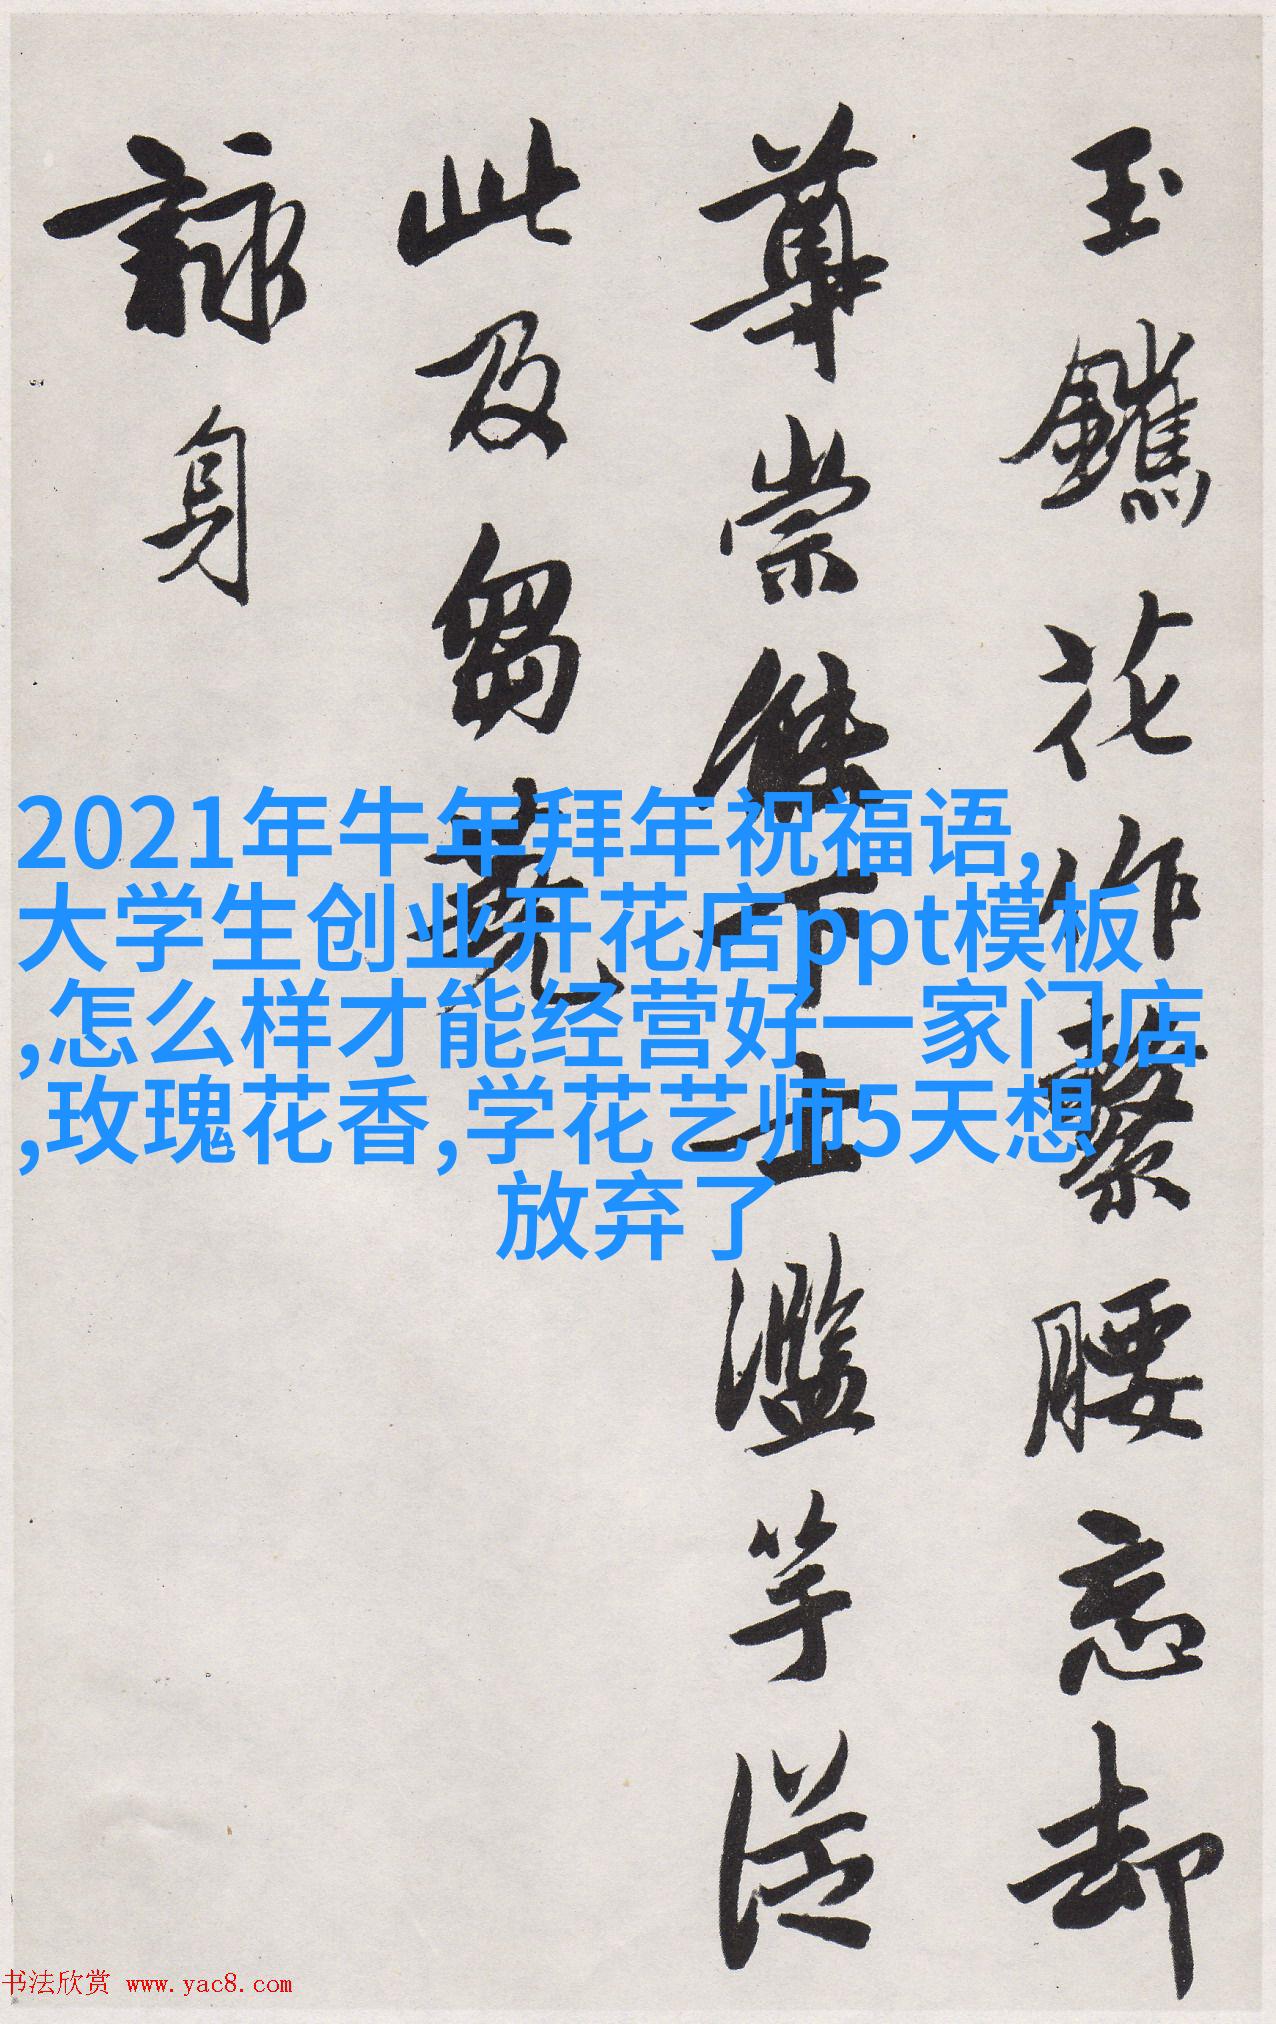 玉鑣花作繫腰忘却
尊崇傑下士濫竽從
此及芻蕘
詠身
2021年牛年拜年祝福语,
大学生创业开花店ppt模板
,怎么样才能经营好一家门店
,玫瑰花香,学花艺师5天想
放弃了
书法欣赏 www.yac8.com